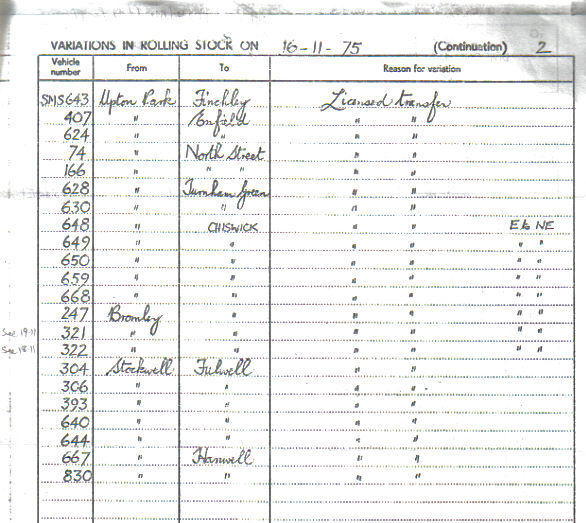 VARIATIONS IN ROLLING STOCK ON 16-11-75 (Continuation) 2
Vehicle number From To Reason for variation
SMS643 Upton Park Finchley Licensed transfer
407 " Enfield " "
624 " " " "
74 " North Street " "
166 " " " " "
628 " Turnham Green " "
630 " " " "
648 " CHISWICK " " E & NE
649 " " " " " "
650 " " " " " "
659 " " " " " "
668 " " " " " "
247 Bromley " " " " "
See 19-11 321 " " " " " "
See 18-11 322 " " " " " "
304 Stockwell Fulwell " "
306 " " " "
393 " " " "
640 " " " "
644 " " " "
667 " Hanwell " "
830 " " " "